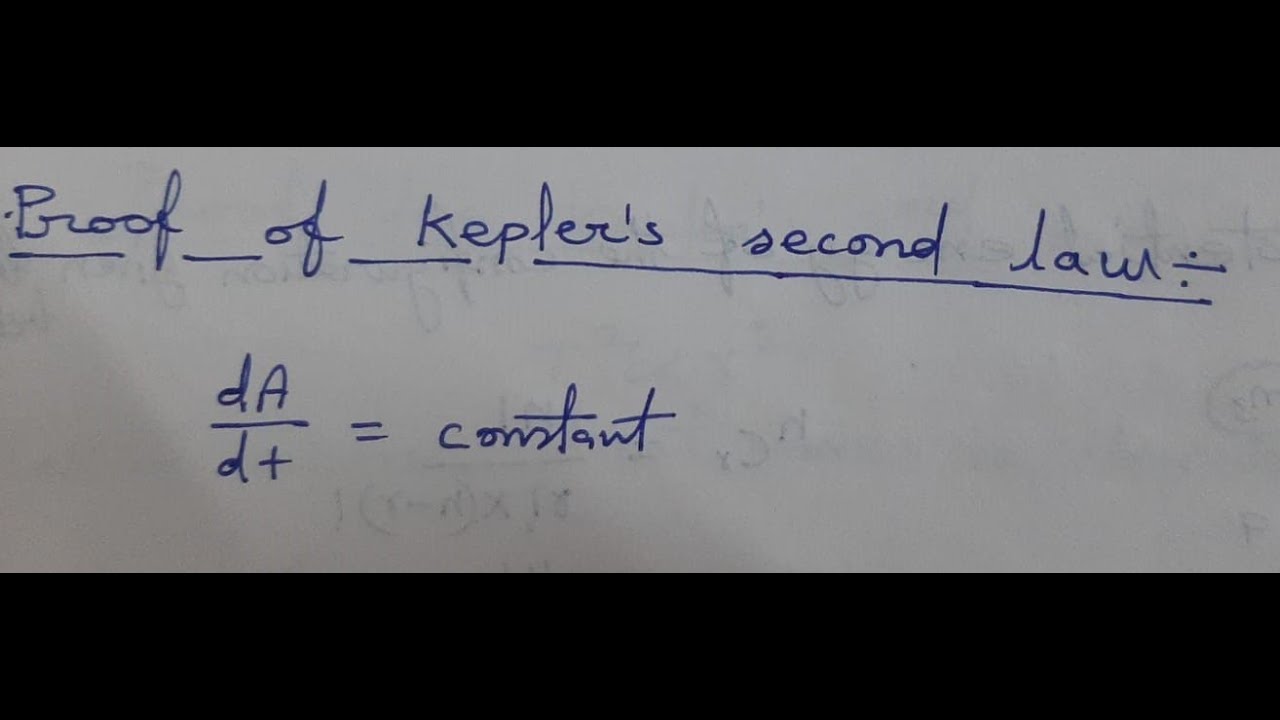 Proof of Kepler's second law÷
dA/dt = constant